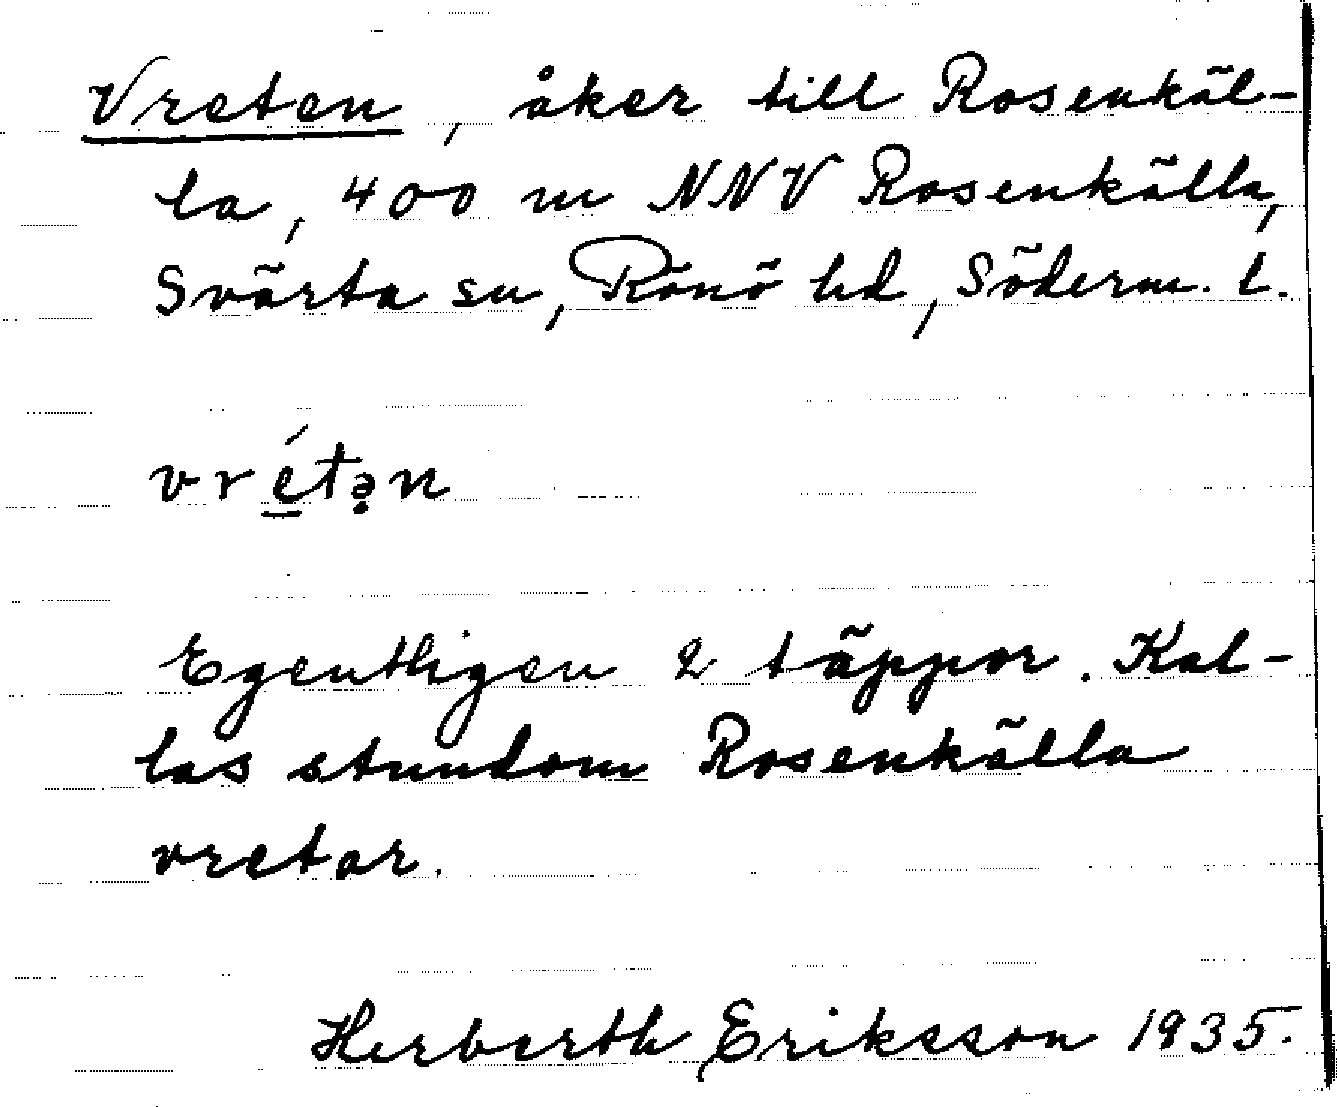 Vreten, åker till Rosenkäl-
la, 400 m NNV Rosenkälla,
Svärta sn, Rönö hd, Söderm. l.
vré̱tə̣n
Egentligen 2 täppor. Kal-
las stundom Rosenkälla
vretar.
Herberth Eriksson 1935.